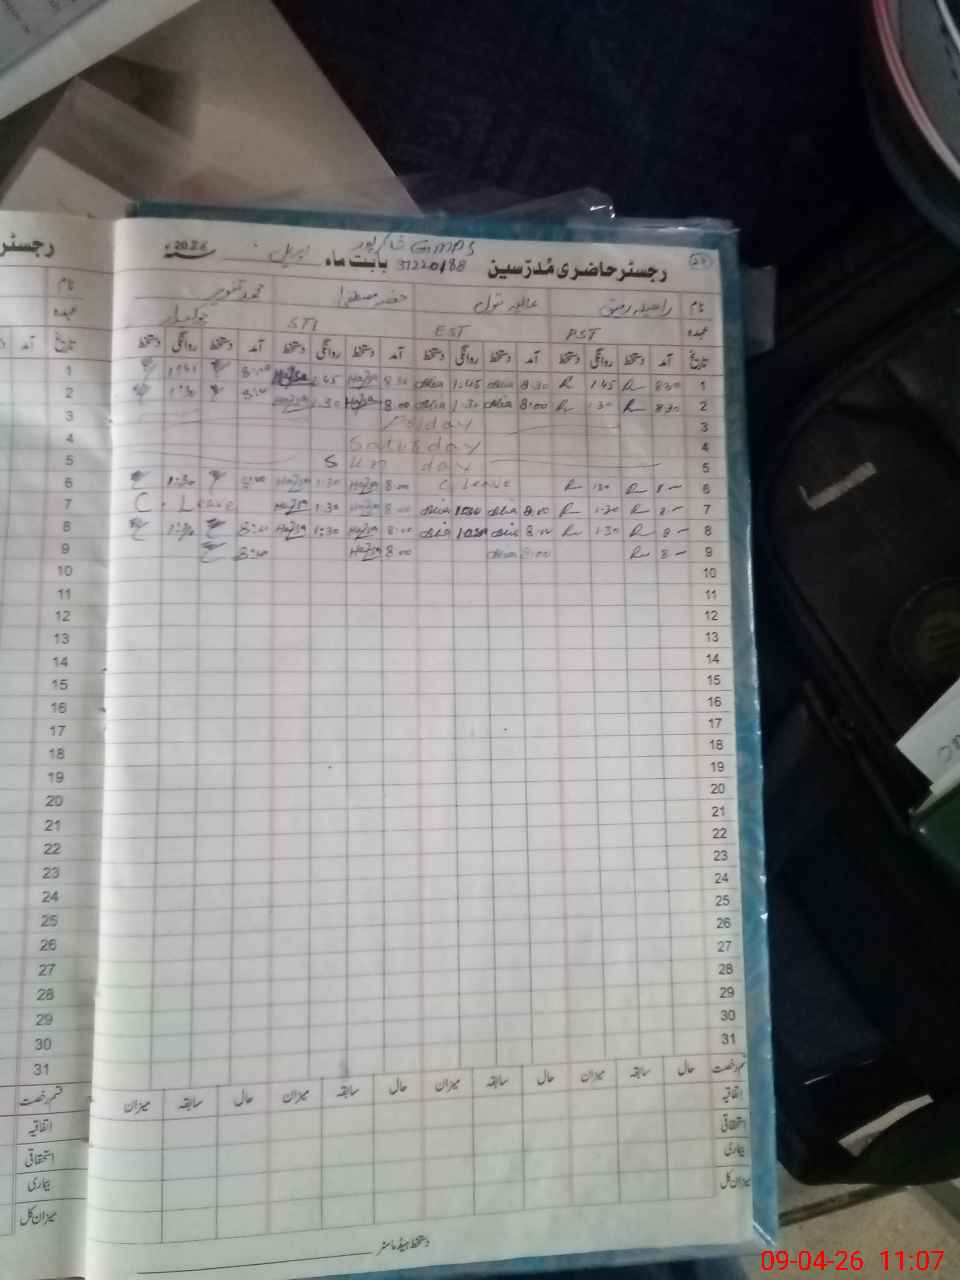 شاکر پور GMPS
رجسٹر حاضری مُدرّسین 37220188 بابت ماہ اپریل 2026ء سنہ
نام عالیہ بتول خضر مصطفیٰ محمد تنویر
عہدہ PST EST STI چوکیدار
تاریخ آمد دستخط روانگی دستخط آمد دستخط روانگی دستخط آمد دستخط روانگی دستخط آمد دستخط روانگی دستخط
1 830 R 1.45 R 8.30 Alia 1.45 Alia 8.30 1.45 8:00
2 830 R 1.30 R 8:00 Alia 1.30 Alia 8.00 1.30 1:30
3 Friday
4 Saturday
5 Sunday
6 8- R 130 R C. Leave 8.00 1.30 1:30
7 8- R 1.30 R 8:00 Alia 1:30 Alia 8.00 1:30 C. Leave
8 8- R 1.30 R 8:00 Alia 1:30 Alia 8:00 1:30 1:30
9 8- R 8:00 Alia 8.00
10
11
12
13
14
15
16
17
18
19
20
21
22
23
24
25
26
27
28
29
30
31
قسم رخصت حال سابقہ میزان حال سابقہ میزان حال سابقہ میزان حال سابقہ میزان
اتفاقیہ
استحقاقی
بیماری
میزان کل
دستخط ہیڈ ماسٹر
رجسٹر
نام
عہدہ
تاریخ آمد
1
2
3
4
5
6
7
8
9
10
11
12
13
14
15
16
17
18
19
20
21
22
23
24
25
26
27
28
29
30
31
قسم رخصت
اتفاقیہ
استحقاقی
بیماری
میزان کل
09-04-26 11:07